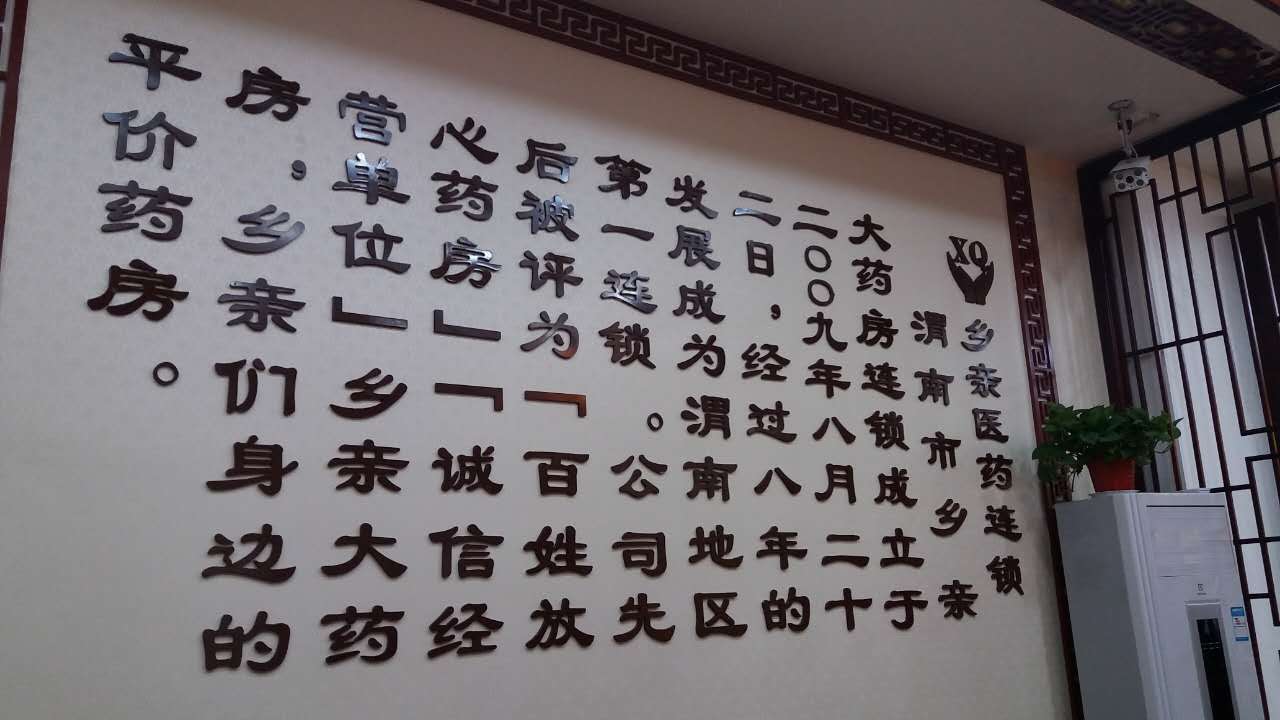 XQ
乡亲医药连锁
渭南市乡亲
大药房连锁成立于
二〇〇九年八月二十
二日，经过八年的
发展成为渭南地区
第一连锁。公司先
后被评为「百姓放
心药房」「诚信经
营单位」乡亲大药
房，乡亲们身边的
平价药房。